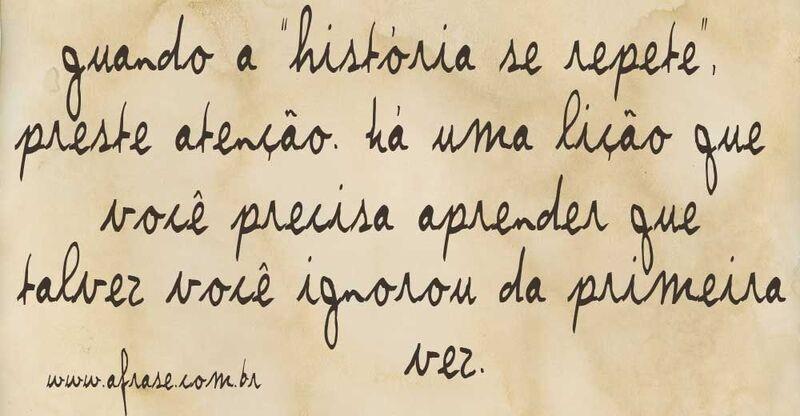 quando a "história se repete",
preste atenção. há uma lição que
você precisa aprender que
talvez você ignorou da primeira
vez.
www.afrase.com.br